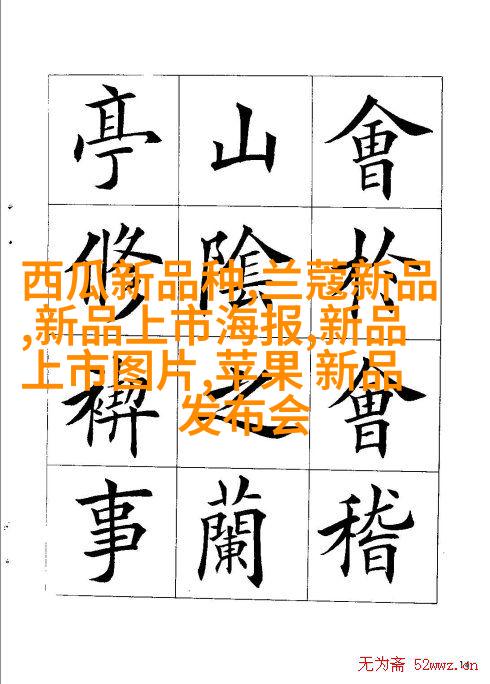 會於會稽
山陰之蘭
亭修禊事
西瓜新品种,兰蔻新品
,新品上市海报,新品
上市图片,苹果 新品
发布会
无为斋 52wwz.cn